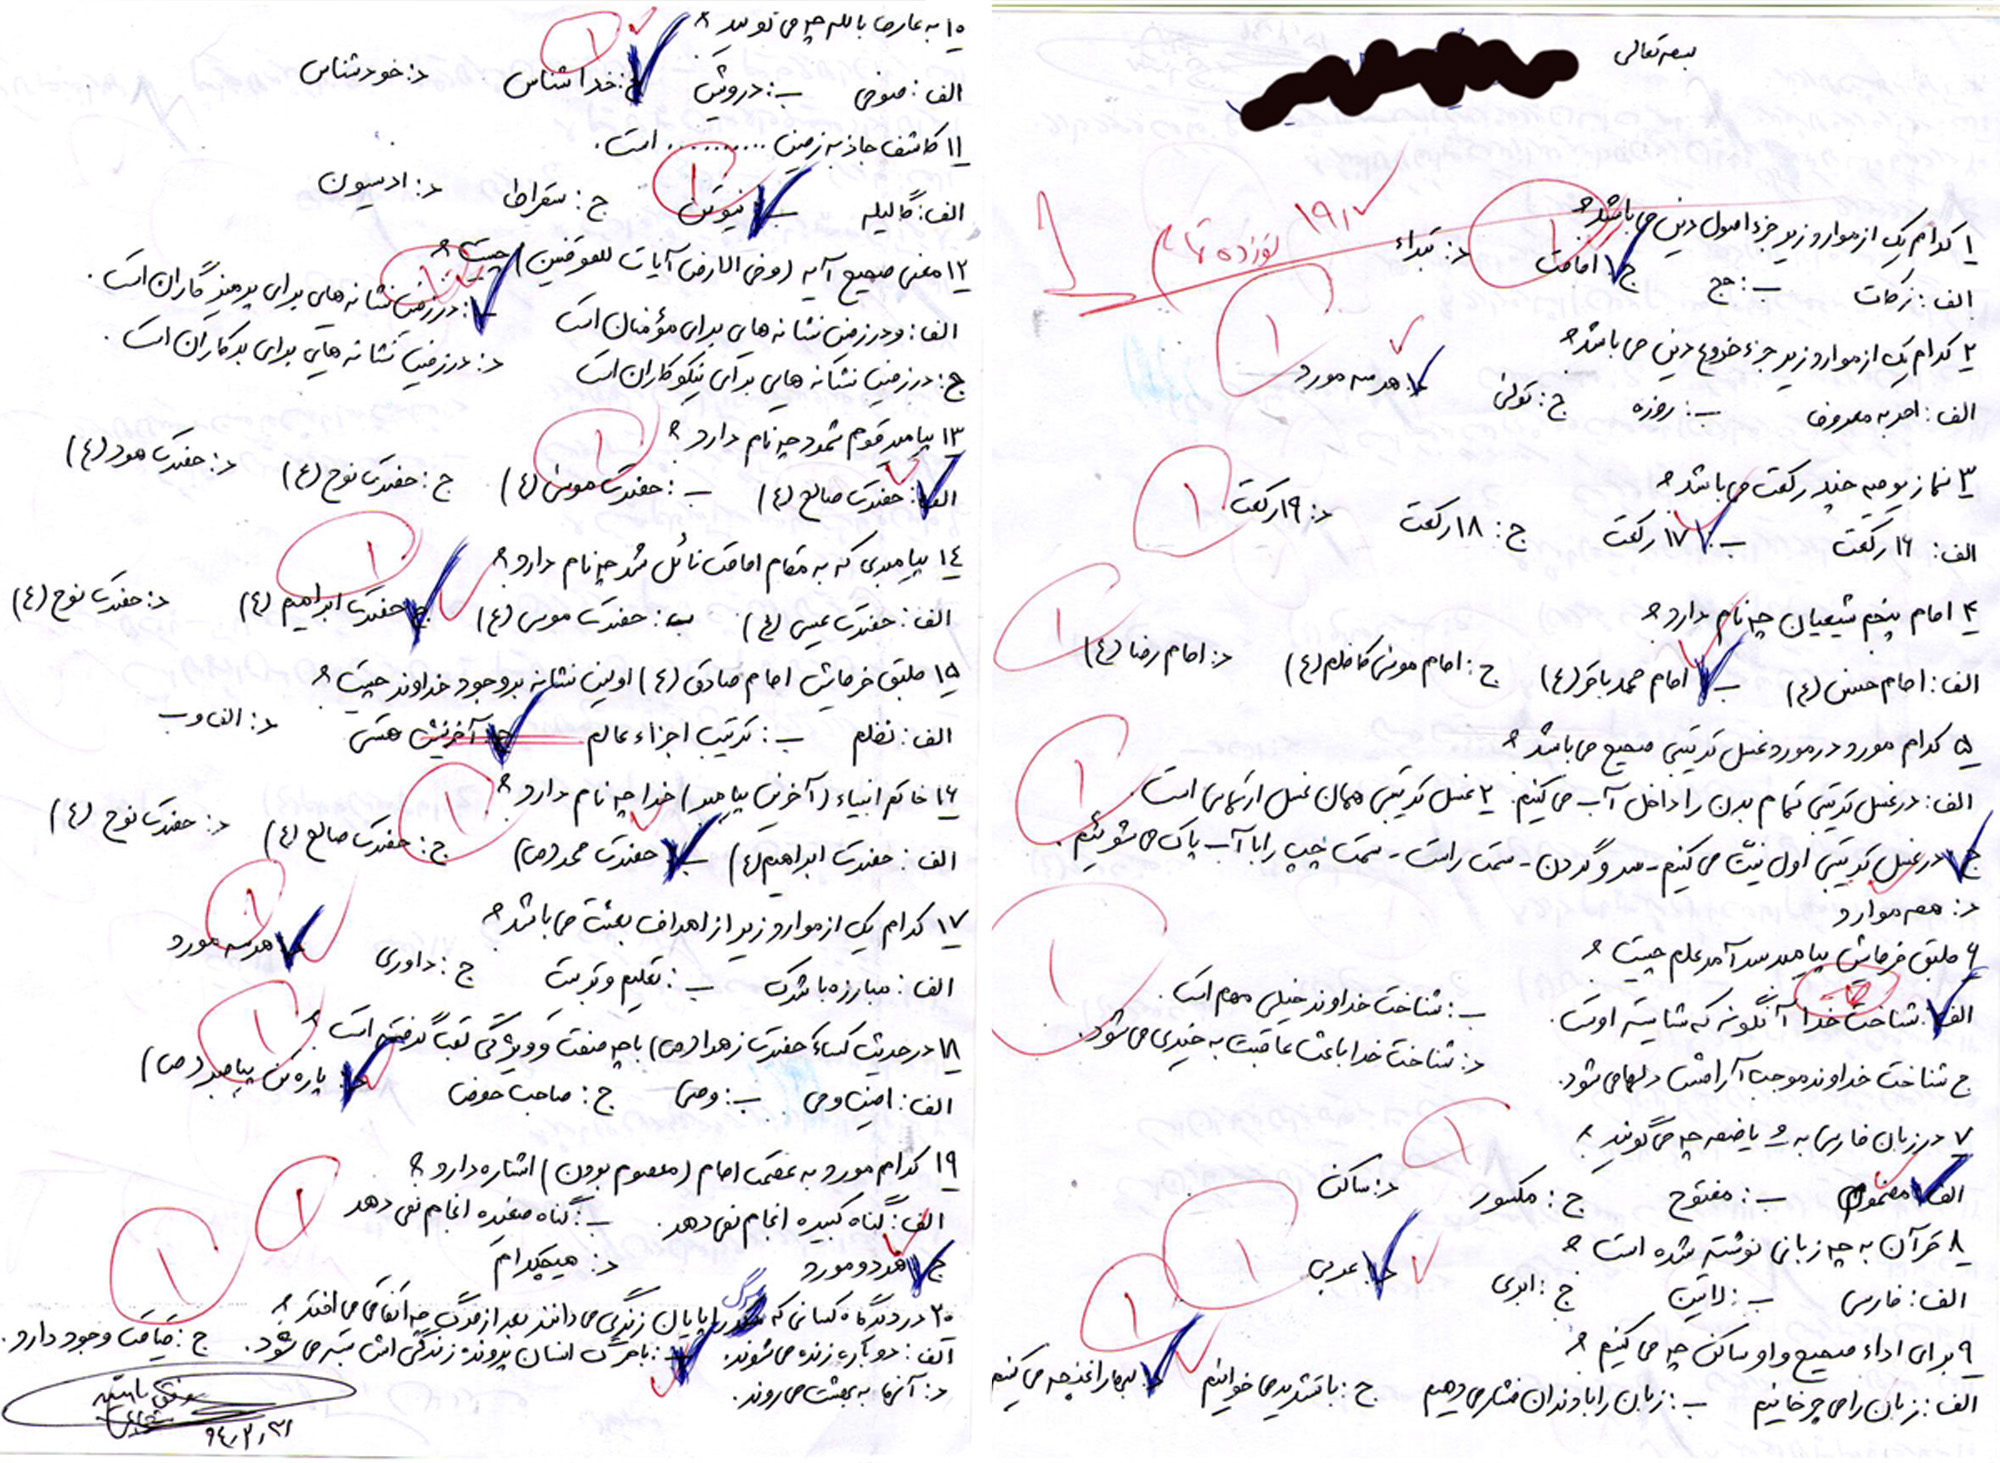 بسمه تعالی
۱۹/ نوزده تمام
۱ کدام یک از موارد زیر جزء اصول دین می باشد؟
الف: زکات ب: حج ج: امامت د: تبراء
۲ کدام یک از موارد زیر جزء فروع دین می باشد؟
الف: امر به معروف ب: روزه ج: تولی د: هر سه مورد
۳ نماز یومیه چند رکعت می باشد؟
الف: ۱۶ رکعت ب: ۱۷ رکعت ج: ۱۸ رکعت د: ۱۹ رکعت
۴ امام پنجم شیعیان چه نام دارد؟
الف: امام حسن (ع) ب: امام محمد باقر (ع) ج: امام موسی کاظم (ع) د: امام رضا (ع)
۵ کدام مورد در مورد غسل ترتیبی صحیح می باشد؟
الف: در غسل ترتیبی تمام بدن را داخل آب می کنیم. ۲ غسل ترتیبی همان غسل ارتماسی است.
ج: در غسل ترتیبی اول نیت می کنیم - سر و گردن - سمت راست - سمت چپ را با آب پاک می شوییم.
د: همه موارد
۶ طبق فرمایش پیامبر سرآمد علم چیست؟
الف: شناخت خدا آنگونه که شایسته اوست. ب: شناخت خداوند خیلی مهم است.
ج شناخت خداوند موجب آرامش دلها می شود. د: شناخت خدا باعث عاقبت به خیری می شود.
۷ در زبان فارسی به ـُ یا ضمه چه می گویند؟
الف: مضموم ب: مفتوح ج: مکسور د: ساکن
۸ قرآن به چه زبانی نوشته شده است؟
الف: فارسی ب: لاتین ج: ابری د: عربی
۹ برای اداء صحیح واو ساکن چه می کنیم؟
الف: زبان را می چرخانیم ب: زبان را با دندان فشار می دهیم ج: با تشدید می خوانیم د: لبها را غنچه می کنیم
۱۰ به عارف بالله چه می گویند؟
الف: صوفی ب: درویش ج: خداشناس د: خودشناس
۱۱ کاشف جاذبه زمین .......... است.
الف: گالیله ب: نیوتن ج: سقراط د: ادیسون
۱۲ معنی صحیح آیه (وفی الارض آیات للموقنین) چیست؟
الف: و در زمین نشانه هایی برای مؤمنان است ب: در زمین نشانه هایی برای پرهیزگاران است.
ج: در زمین نشانه هایی برای نیکوکاران است د: در زمین نشانه هایی برای بدکاران است.
۱۳ پیامبر قوم ثمود چه نام دارد؟
الف: حضرت صالح (ع) ب: حضرت موسی (ع) ج: حضرت نوح (ع) د: حضرت هود (ع)
۱۴ پیامبری که به مقام امامت نائل شد چه نام دارد؟
الف: حضرت عیسی (ع) ب: حضرت موسی (ع) ج: حضرت ابراهیم (ع) د: حضرت نوح (ع)
۱۵ طبق فرمایش امام صادق (ع) اولین نشانه بر وجود خداوند چیست؟
الف: نظم ب: ترتیب اجزاء عالم ج: آفرینش هستی د: الف و ب
۱۶ خاتم انبیاء (آخرین پیامبر) خدا چه نام دارد؟
الف: حضرت ابراهیم (ع) ب: حضرت محمد (ص) ج: حضرت صالح (ع) د: حضرت نوح (ع)
۱۷ کدام یک از موارد زیر از اهداف بعثت می باشد؟
الف: مبارزه با شرک ب: تعلیم و تربیت ج: داوری د: هر سه مورد
۱۸ در حدیث کساء حضرت زهرا (ص) با چه صفت و ویژگی لقب گرفته است؟
الف: امین وحی ب: وصی ج: صاحب حوض د: پاره تن پیامبر (ص)
۱۹ کدام مورد به عصمت امام (معصوم بودن) اشاره دارد؟
الف: گناه کبیره انجام نمی دهد. ب: گناه صغیره انجام نمی دهد
ج: هر دو مورد د: هیچکدام
۲۰ در دیدگاه کسانی که مرگ را پایان زندگی می دانند بعد از مرگ چه اتفاقی می افتد؟
الف: دوباره زنده می شوند. ب: با مرگ انسان پرونده زندگی اش بسته می شود. ج: قیامت وجود دارد.
د: آنها به بهشت می روند.
۹۴/۲/۳۱